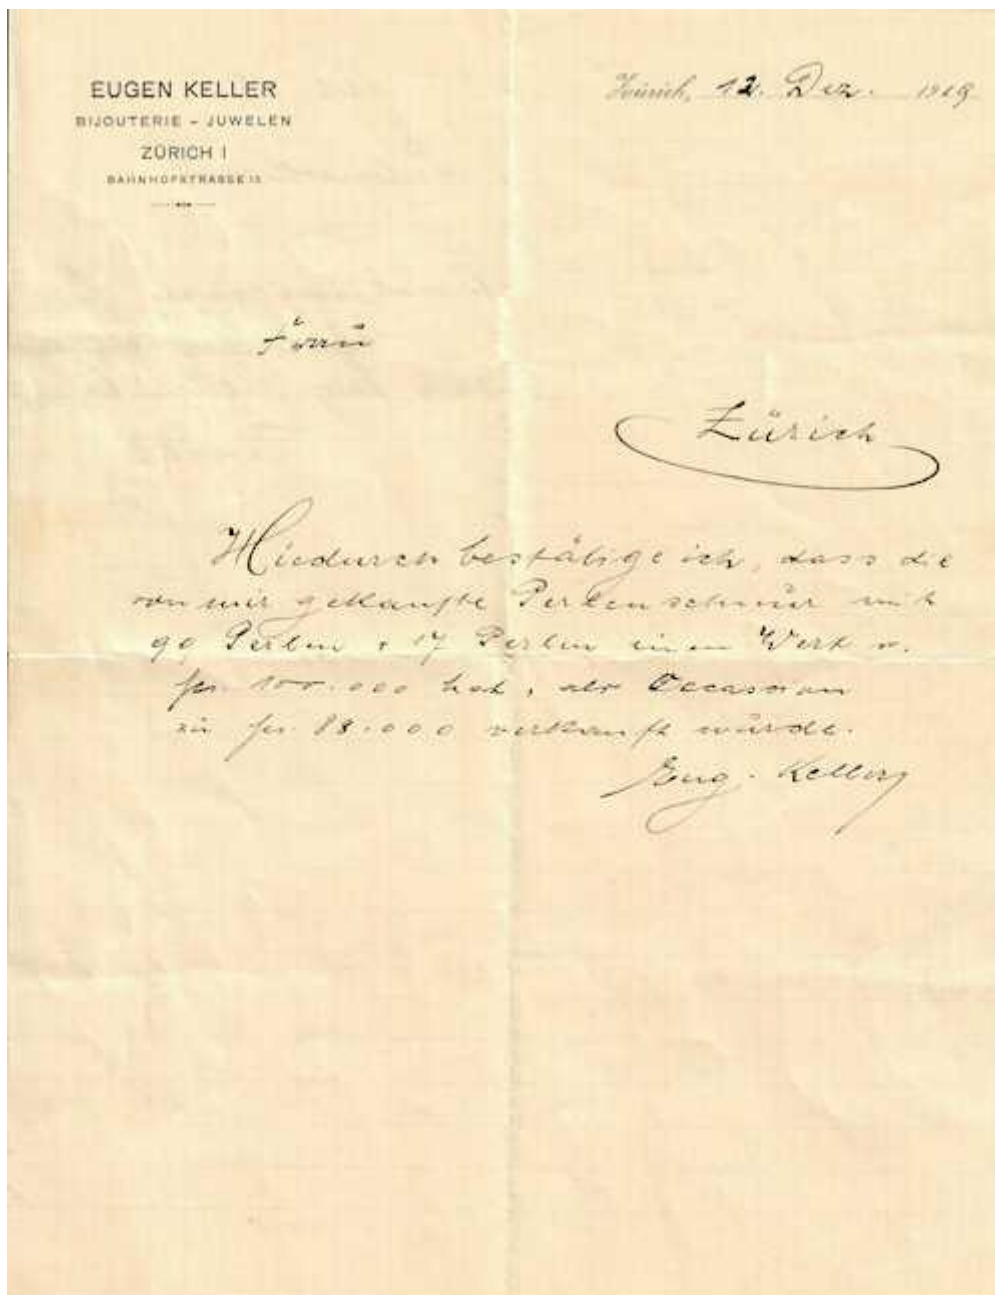 EUGEN KELLER
BIJOUTERIE – JUWELEN
ZÜRICH I
BAHNHOFSTRASSE 15
Zürich, 12. Dez. 1919
Frau
Zürich
Hiedurch bestätige ich, dass die
von mir gekaufte Perlenschnur mit
99 Perlen + 17 Perlen einen Wert v.
fr. 100.000 hat, als Occasion
zu fr. 88.000 verkauft wurde.
Eug. Keller